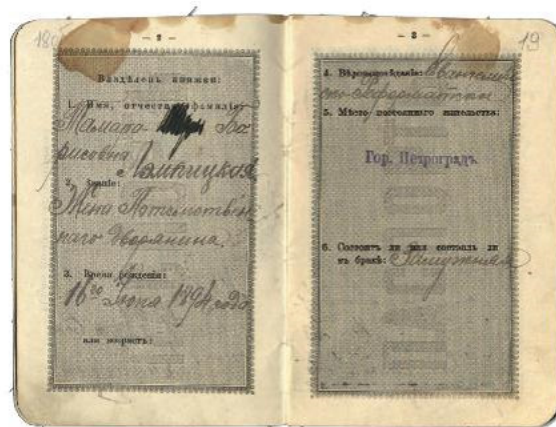 — 2 —
Владѣлецъ книжки:
1. Имя, отчество, фамилія:
Тамара Бо
рисовна
2. Званіе:
Жена Потомствен
наго дворянина.
3. Время рожденія:
16го Іюня 1894 года
или возрастъ:
— 3 —
19
4. Вѣроисповѣданіе: Евангеличе
ско-Реформатское
5. Мѣсто постояннаго жительства:
Гор. Петроградъ.
6. Состоитъ ли или состоялъ ли
въ бракѣ: Замужняя